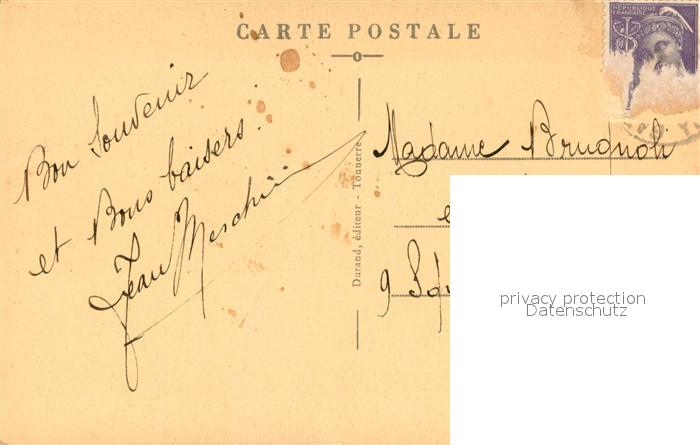 CARTE POSTALE
RÉPUBLIQUE
FRANÇAISE
Bon souvenir
et Bons baisers.
Jean
Durand, éditeur - Tonnerre
Madame Brugnoli
9
privacy protection
Datenschutz